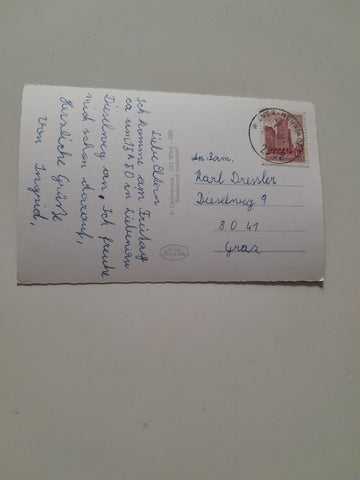 Liebe Eltern
Ich komme am Freitag
ca um 15h30 in Liebenau
Dieselweg an. Ich freue
mich schon darauf,
Herzliche Grüße
von Ingrid,
An Fam.
Karl Dressler
Dieselweg 9
8041
Graz